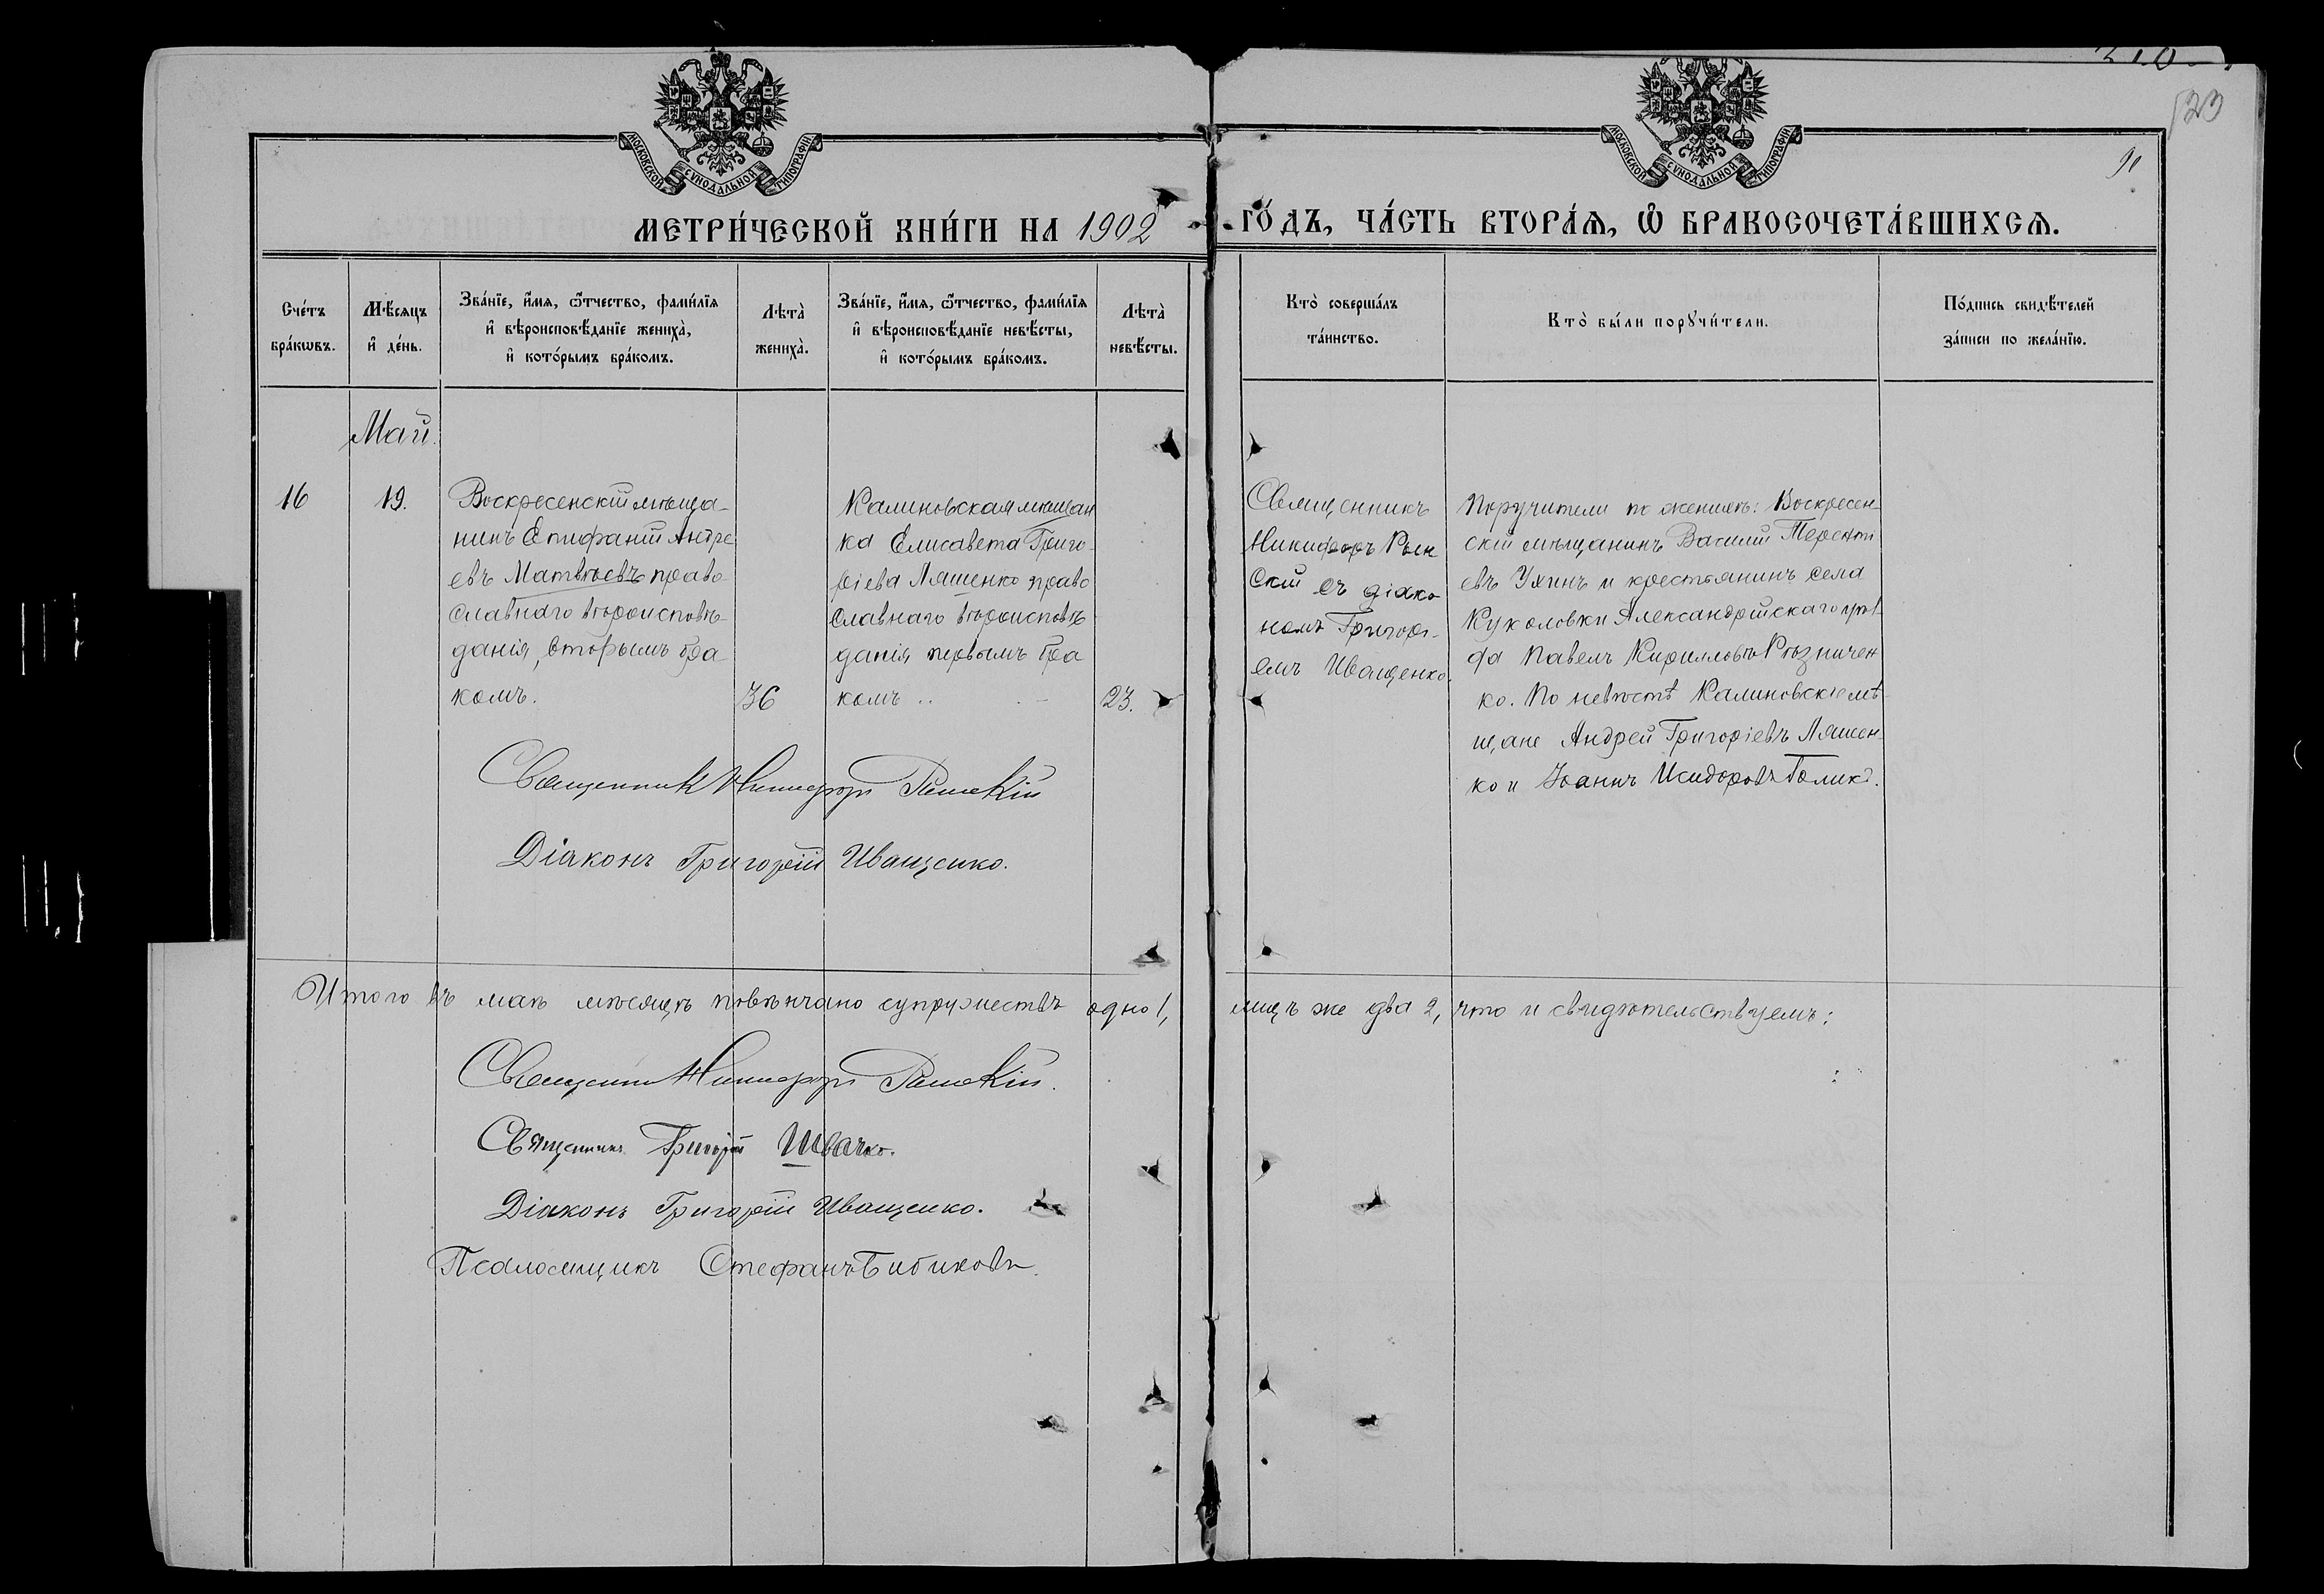 523
91
МОСКОВСКОЙ СѴНОДАЛЬНОЙ ТИПОГРАФІИ
МОСКОВСКОЙ СѴНОДАЛЬНОЙ ТИПОГРАФІИ
МЕТРИ́ЧЕСКОЙ КНИ́ГИ НА 1902 ГО́ДЪ, ЧА́СТЬ ВТОРА́Я, Ѡ҆ БРАКОСОЧЕТА́ВШИХСЯ.
Сче́тъ
бра́кѡвъ.
Мѣ́сяцъ
и҆ де́нь.
Зва́нїе, и҆́мя, ѻ҆́тчество, фами́лїя
и҆ вѣроисповѣ́данїе жениха̀,
и҆ кото́рымъ бра́комъ.
Лѣта̀
жениха̀.
Зва́нїе, и҆́мя, ѻ҆́тчество, фами́лїя
и҆ вѣроисповѣ́данїе невѣ́сты,
и҆ кото́рымъ бра́комъ.
Лѣта̀
невѣ́сты.
Кто̀ соверша́лъ
та́инство.
Кто̀ бы́ли порꙋчи́тели.
По́дпись свидѣ́телей
за́писи по жела́нїю.
Май.
16
19.
Воскресенскій мѣща-
нинъ Епифаній Андре
евъ Матвѣевъ право-
славнаго вѣроисповѣ-
данія, вторымъ бра-
комъ.
36
Калиновская мѣщан
ка Елисавета Григо-
ріева Ляшенко право
славнаго вѣроисповѣ
данія первымъ бра
комъ
23.
Священникъ
Никифоръ
скій съ діако
номъ Григорі-
емъ Иващенко.
Поручители по женихѣ: Воскресен-
скій мѣщанинъ Василій Теренті
евъ Ухинъ и крестьянинъ села
Куколовки Александрійскаго уѣ
да Павелъ Кирилловъ Рѣзничен
ко. По невѣстѣ Калиновскіе мѣ-
щане Андрей Григоріевъ Ляшен-
ко и Іоаннъ Исидоровъ Голикъ.
Священникъ Никифоръ
Діаконъ Григорій Иващенко.
Итого въ маѣ мѣсяцѣ повѣнчано супружествъ одно 1, лицъ же два 2, что и свидѣтельствуемъ:
Священникъ Никифоръ
Священникъ Григорій Швачко.
Діаконъ Григорій Иващенко.
Псаломщикъ Стефанъ Бибиковъ.